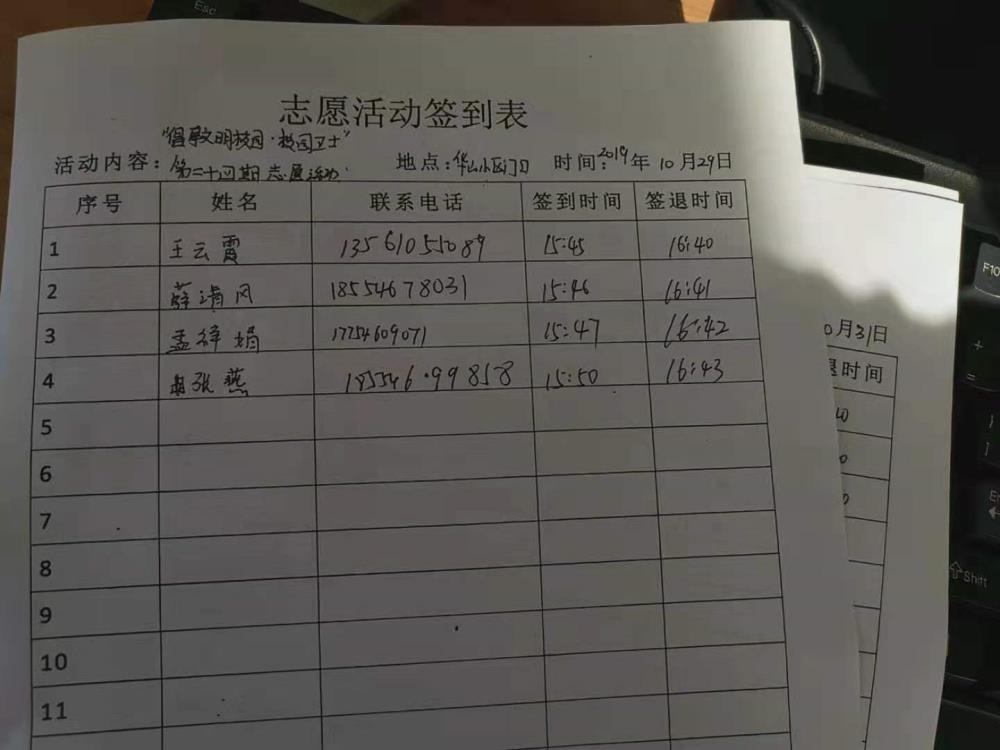 Esc
志愿活动签到表
"倡导文明校园·校园卫士"
活动内容：第二十四期志愿活动 地点：华山小区门口 时间：2019年10月29日
序号 姓名 联系电话 签到时间 签退时间
1 王云霞 13561055089 15:45 16:40
2 薛清风 18554678031 15:46 16:41
3 孟祥娟 17754609071 15:47 16:42
4 张燕 18554699858 15:50 16:43
5
6
7
8
9
10
11
0月31日
退时间
40
0
0
F10
+
=
}
]
En
Shift